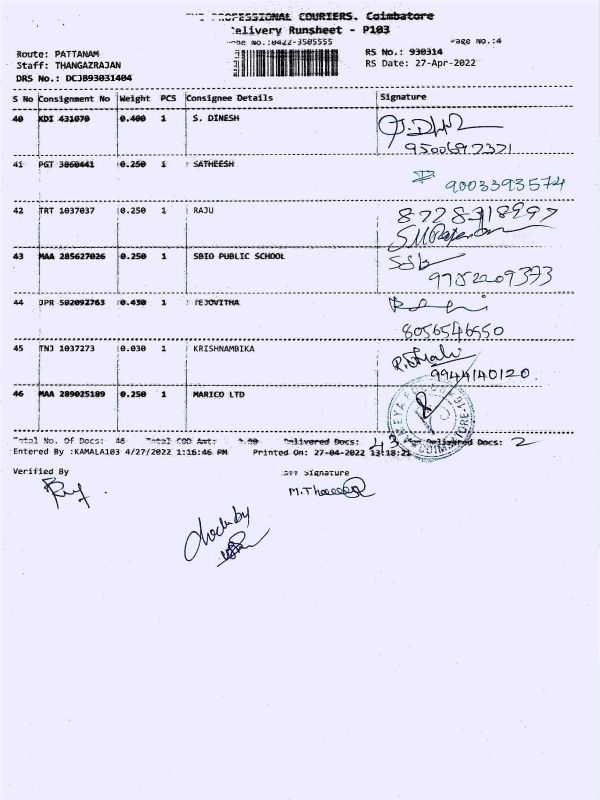 THE PROFESSIONAL COURIERS. Coimbatore
Delivery Runsheet - P103
No.:0422-3505555 Page No.:4
Route: PATTANAM RS No.: 930314
Staff: THANGAZRAJAN RS Date: 27-Apr-2022
DRS No.: DCJB93031404
S No Consignment No Weight PCS Consignee Details Signature
40 KDI 431070 0.400 1 S. DINESH
9500697371
41 PGT 3860441 0.250 1 SATHEESH
9003393574
42 TRT 1037037 0.250 1 RAJU 8728318997
43 MAA 285627026 0.250 1 SBIO PUBLIC SCHOOL
9752209373
44 JPR 502092763 0.430 1 TEJOVITHA
8056546550
45 TNJ 1037273 0.030 1 KRISHNAMBIKA
9944140120.
46 MAA 289025189 0.250 1 MARICO LTD
Total No. Of Docs: 46 Total COD Amt: 0.00 Delivered Docs: 43 Delivered Docs: 2
Entered By :KAMALA103 4/27/2022 1:16:46 PM Printed On: 27-04-2022 13:18:21
Verified By Signature